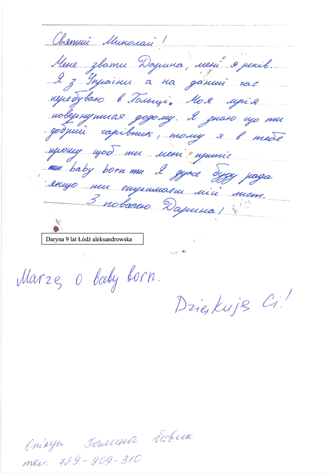 Святий Миколай!
Мене звати Дарина, мені 9 років.
Я з України а на даний час
перебуваю в Польщі. Моя мрія
повернутися додому. Я знаю що ти
добрий чарівник, тому я в тебе
прошу щоб ти мені приніс
baby born Я дуже буду рада
якщо ти отримаєш мій лист.
З повагою Дарина!
Daryna 9 lat Łódź aleksandrowska
Marzę o baby born.
Dziękuję Ci!
опікун Галина
тел. 739-909-310